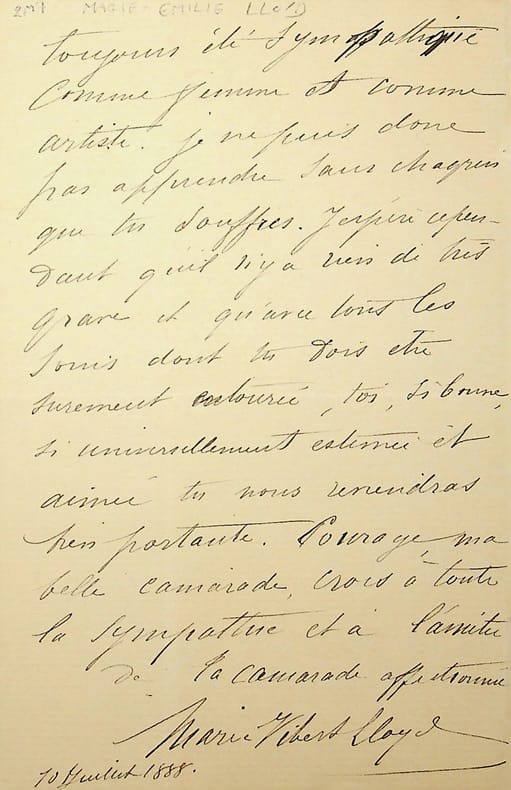 2M7 MARIE-EMILIE LLOYD
toujours été sympathique
comme femme et comme
artiste. je ne puis donc
pas apprendre sans chagrin
que tu souffres. J'espère cepen-
dant qu'il n'y a rien de très
grave et qu'avec tous les
soins dont tu dois être
surement entourée, toi, si bonne,
si universellement estimée et
aimée tu nous reviendras
bien portante. Courage, ma
belle camarade, crois à toute
la sympathie et à l'amitié
de ta camarade affectionnée
Marie Vibert Lloyd
10 Juillet 1888.